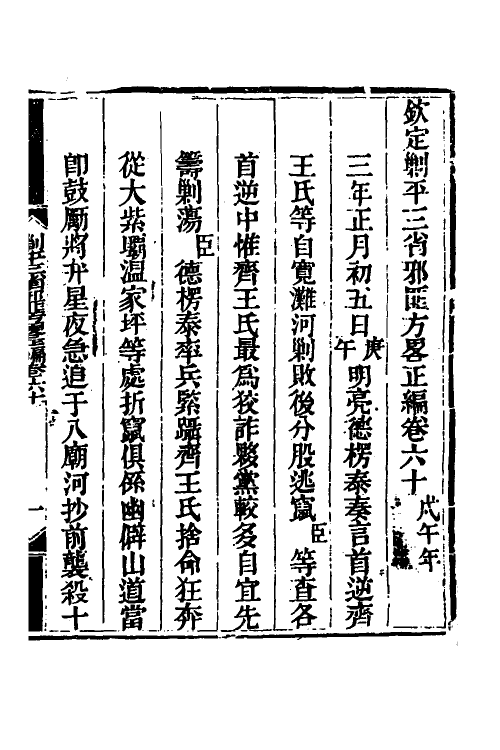 欽定剿平三省邪匪方畧正編卷六十 戊午年
三年正月初五日庚午明亮德楞泰奏言首逆齊
王氏等自寬灘河剿敗後分股逃竄臣等查各
首逆中惟齊王氏最為狡詐夥黨較多自宜先
籌剿蕩臣德楞泰率兵緊躡齊王氏捨命狂奔
從大紫壩温家坪等處折竄俱係幽僻山道當
卽鼓勵將弁星夜急追于八廟河抄前襲殺十